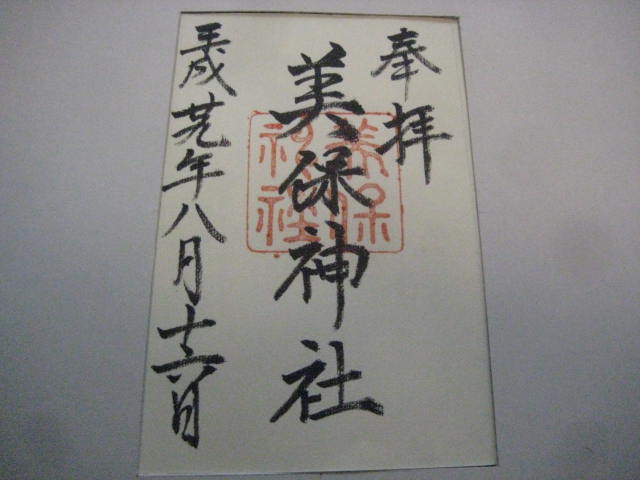 奉拝
美保神社
美保
神社
平成廿九年八月十六日